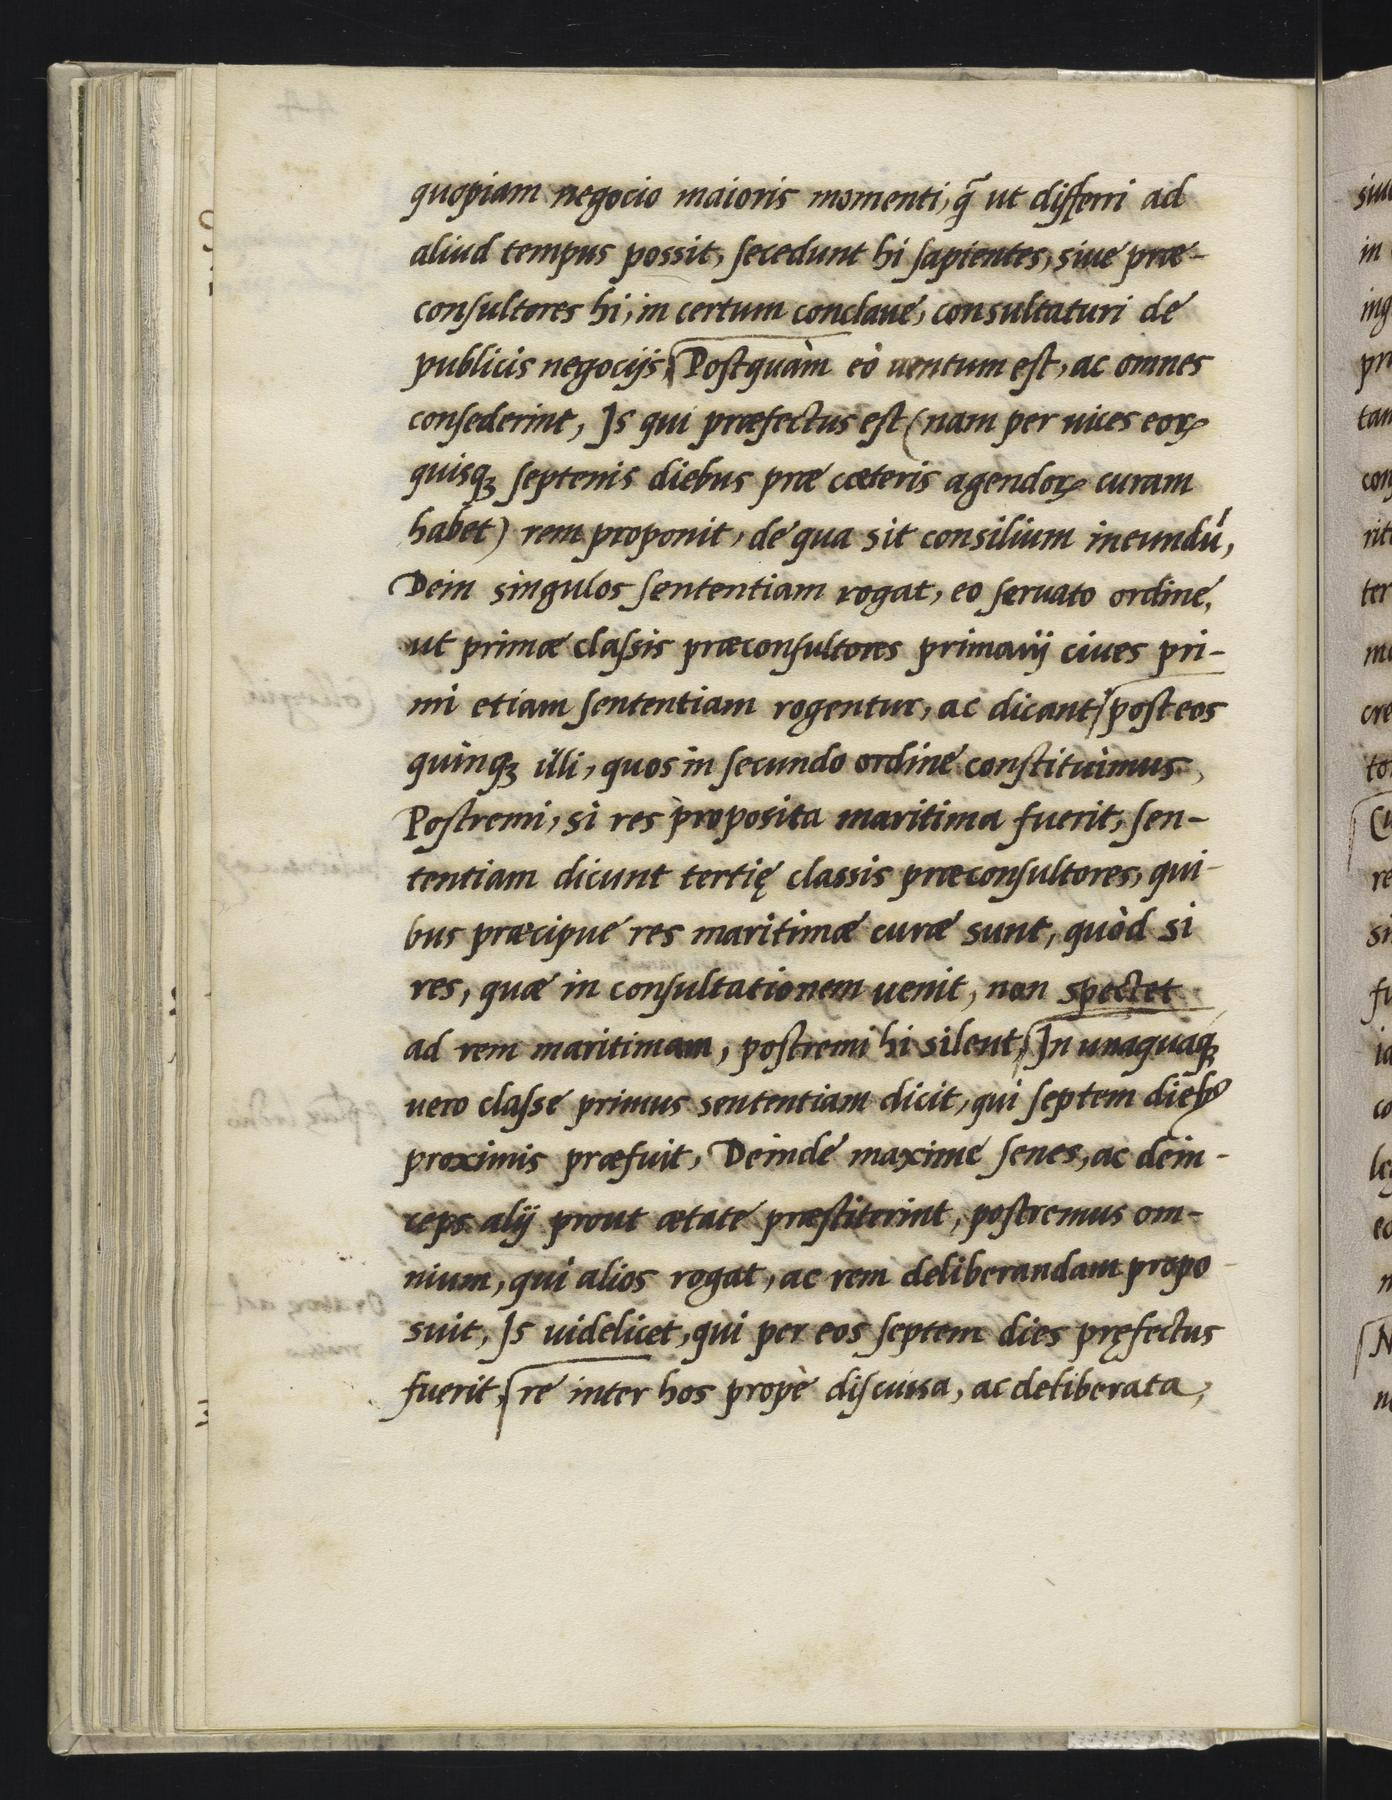 quopiam negocio maioris momenti, q̃ ut differri ad
aliud tempus possit, secedunt hi sapientes, siue præ-
consultores hi, in certum conclaue, consultaturi de
publicis negocijs, Postquàm eò uentum est, ac omnes
consederint, Is qui præfectus est (nam per uices eoꝝ
quisqꝫ septenis diebus præ cæteris agendoꝝ curam
habet) rem proponit, de qua sit consilium ineundũ,
Dein singulos sententiam rogat, eo seruato ordine,
ut primæ classis præconsultores primarij ciues pri-
mi etiam sententiam rogentur, ac dicant, post eos
quinqꝫ illi, quos in secundo ordine constituimus,
Postremi, si res proposita maritima fuerit, sen-
tentiam dicunt tertię classis præconsultores, qui-
bus præcipue res maritimæ curæ sunt, quòd si
res, quæ in consultationem uenit, non spectet
ad rem maritimam, postremi hi silent, In unaquaqꝫ
uero classe primus sententiam dicit, qui septem diebꝰ
proximis præfuit, Deinde maxime senes, ac dein-
ceps alij prout ætate præstiterint, postremus om-
nium, qui alios rogat, ac rem deliberandam propo
suit, Is uidelicet, qui per eos septem dies pręfectus
fuerit, re inter hos propè discussa, ac deliberata,